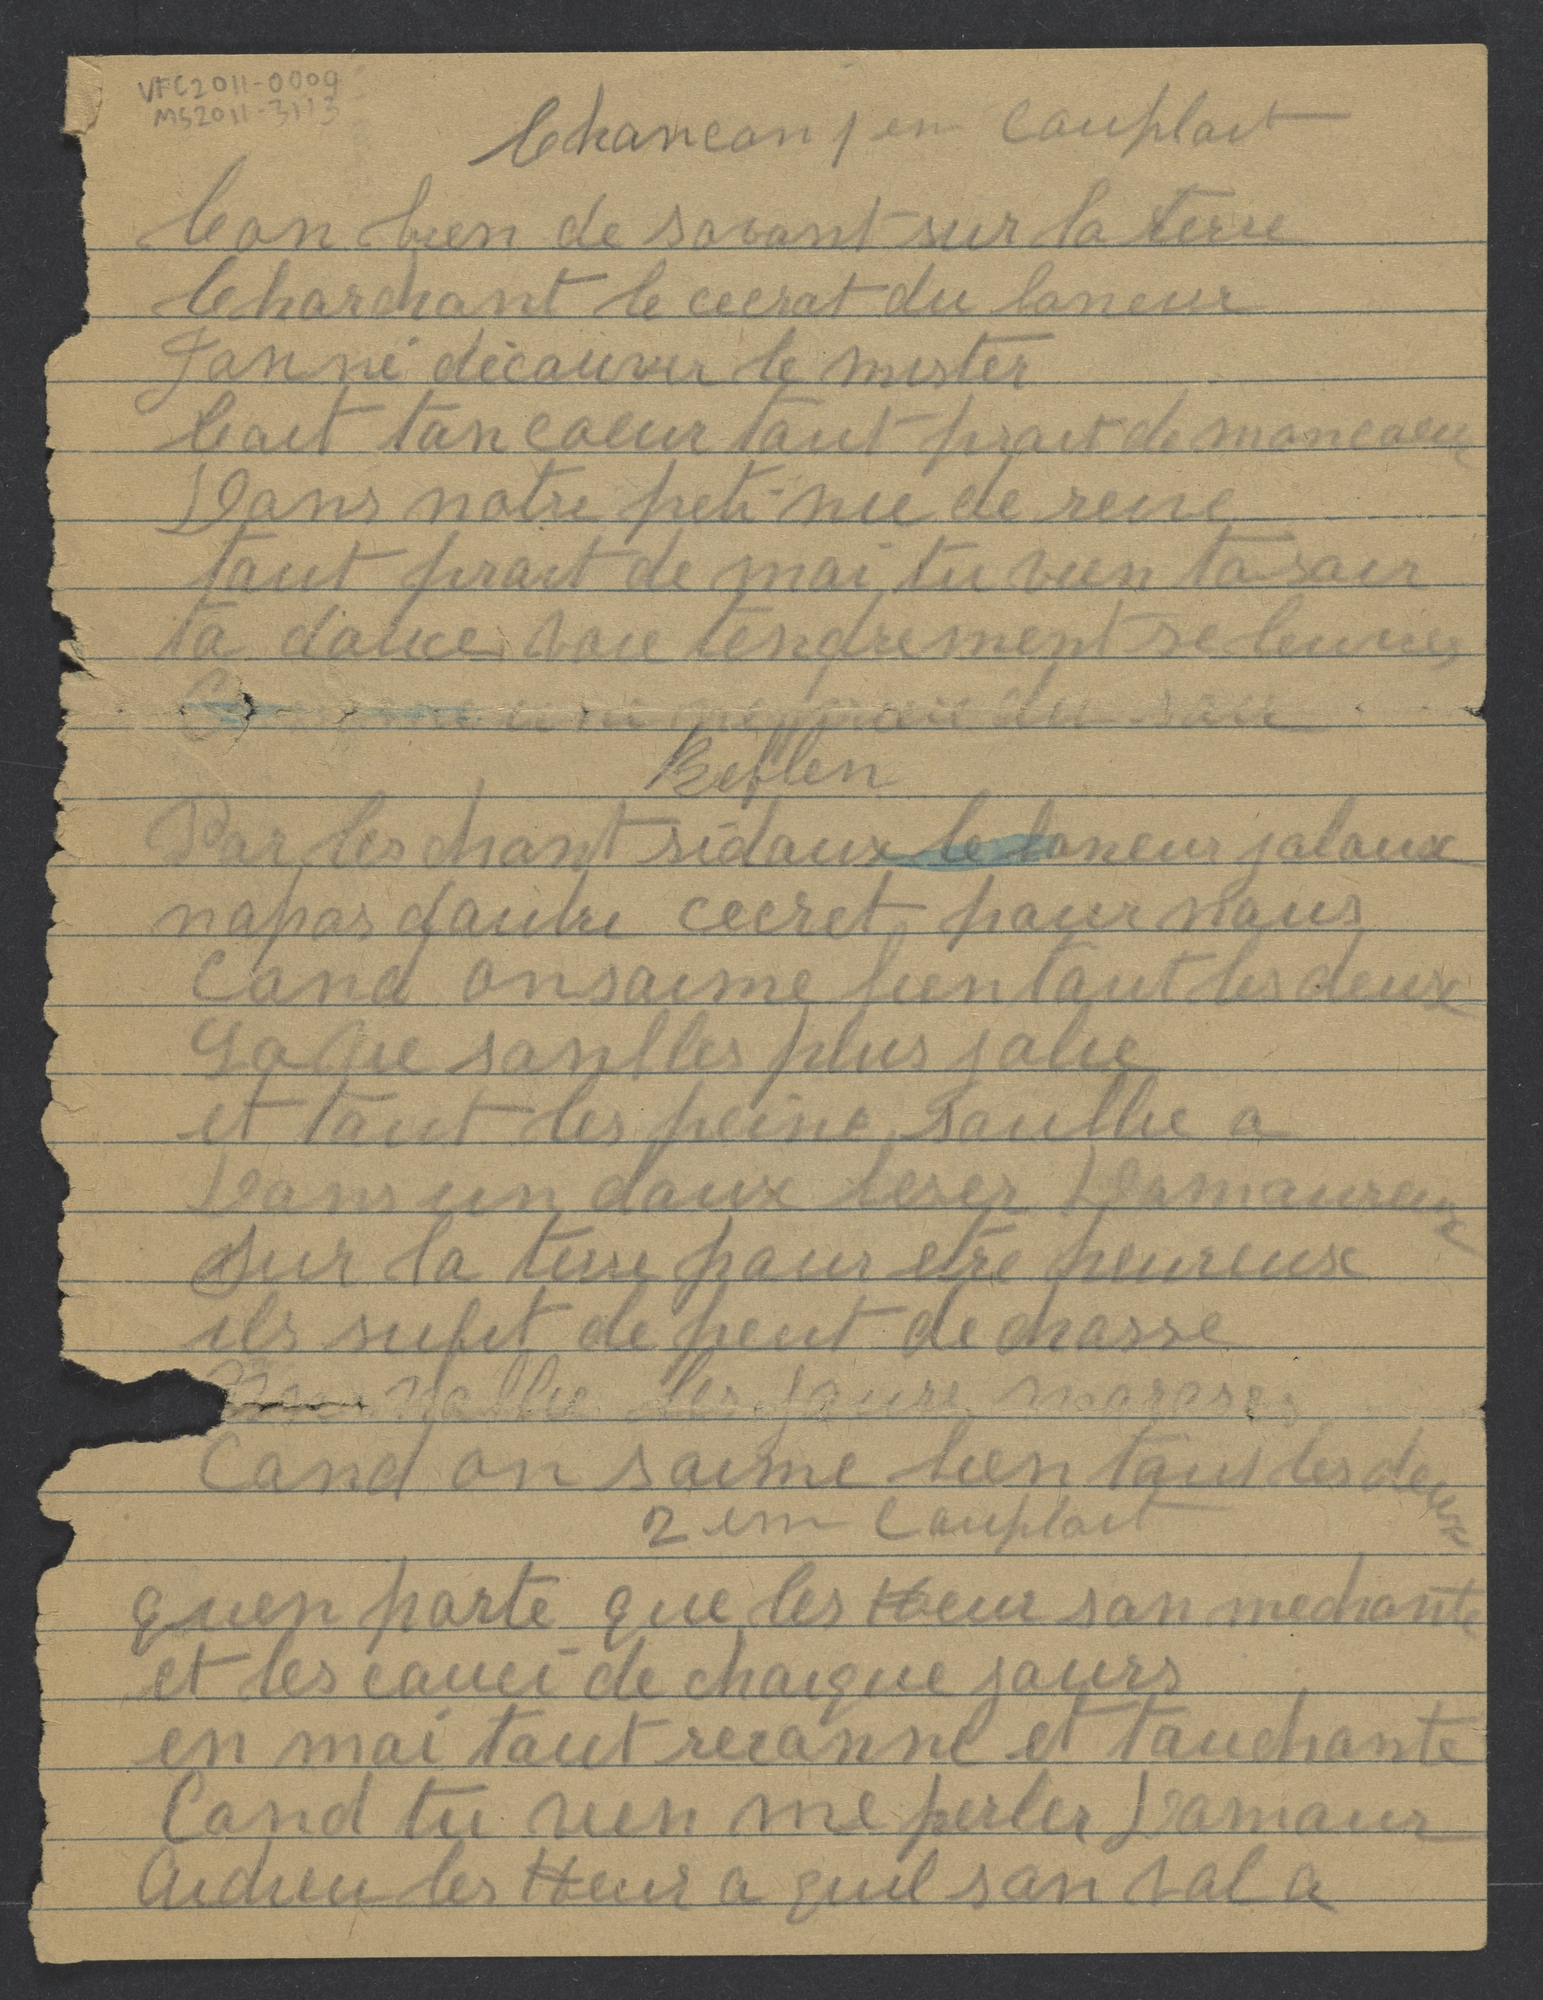 VFC2011-0009
MS2011-3113
Chancon 1 em Couplait
Con bien de savant sur la terre
Charchant le cecrat du boneur
J'on ni découver le mister
Cait ton coeur tout prait de moncoeur
Dans notre peti nie de reve
tout prait de moi tu vien tasoir
ta douce voie tendrement se leuve
du soir
Reflen
Par les chant sidoux le boneur jaloux
napas dautre cecret pour nous
Cand onsaime bien tout les deux
La vie sanble plus jolie
et tout les peine soublie a
Dans un doux beser Damoureux
Sur la terre pour etre heureux
ils sufit de peut de chosse
les jours moroses
Cand on saime bien tous les deux
2 em Couplait
quen porte que les Heur son mechante
et les couci de chaique jours
en moi tout rezonne et touchante
Cand tu vien me perler Damour
Aidieu les Heur a quil son sal a